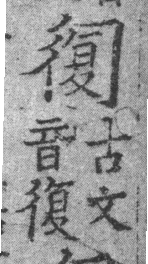 古文
音復